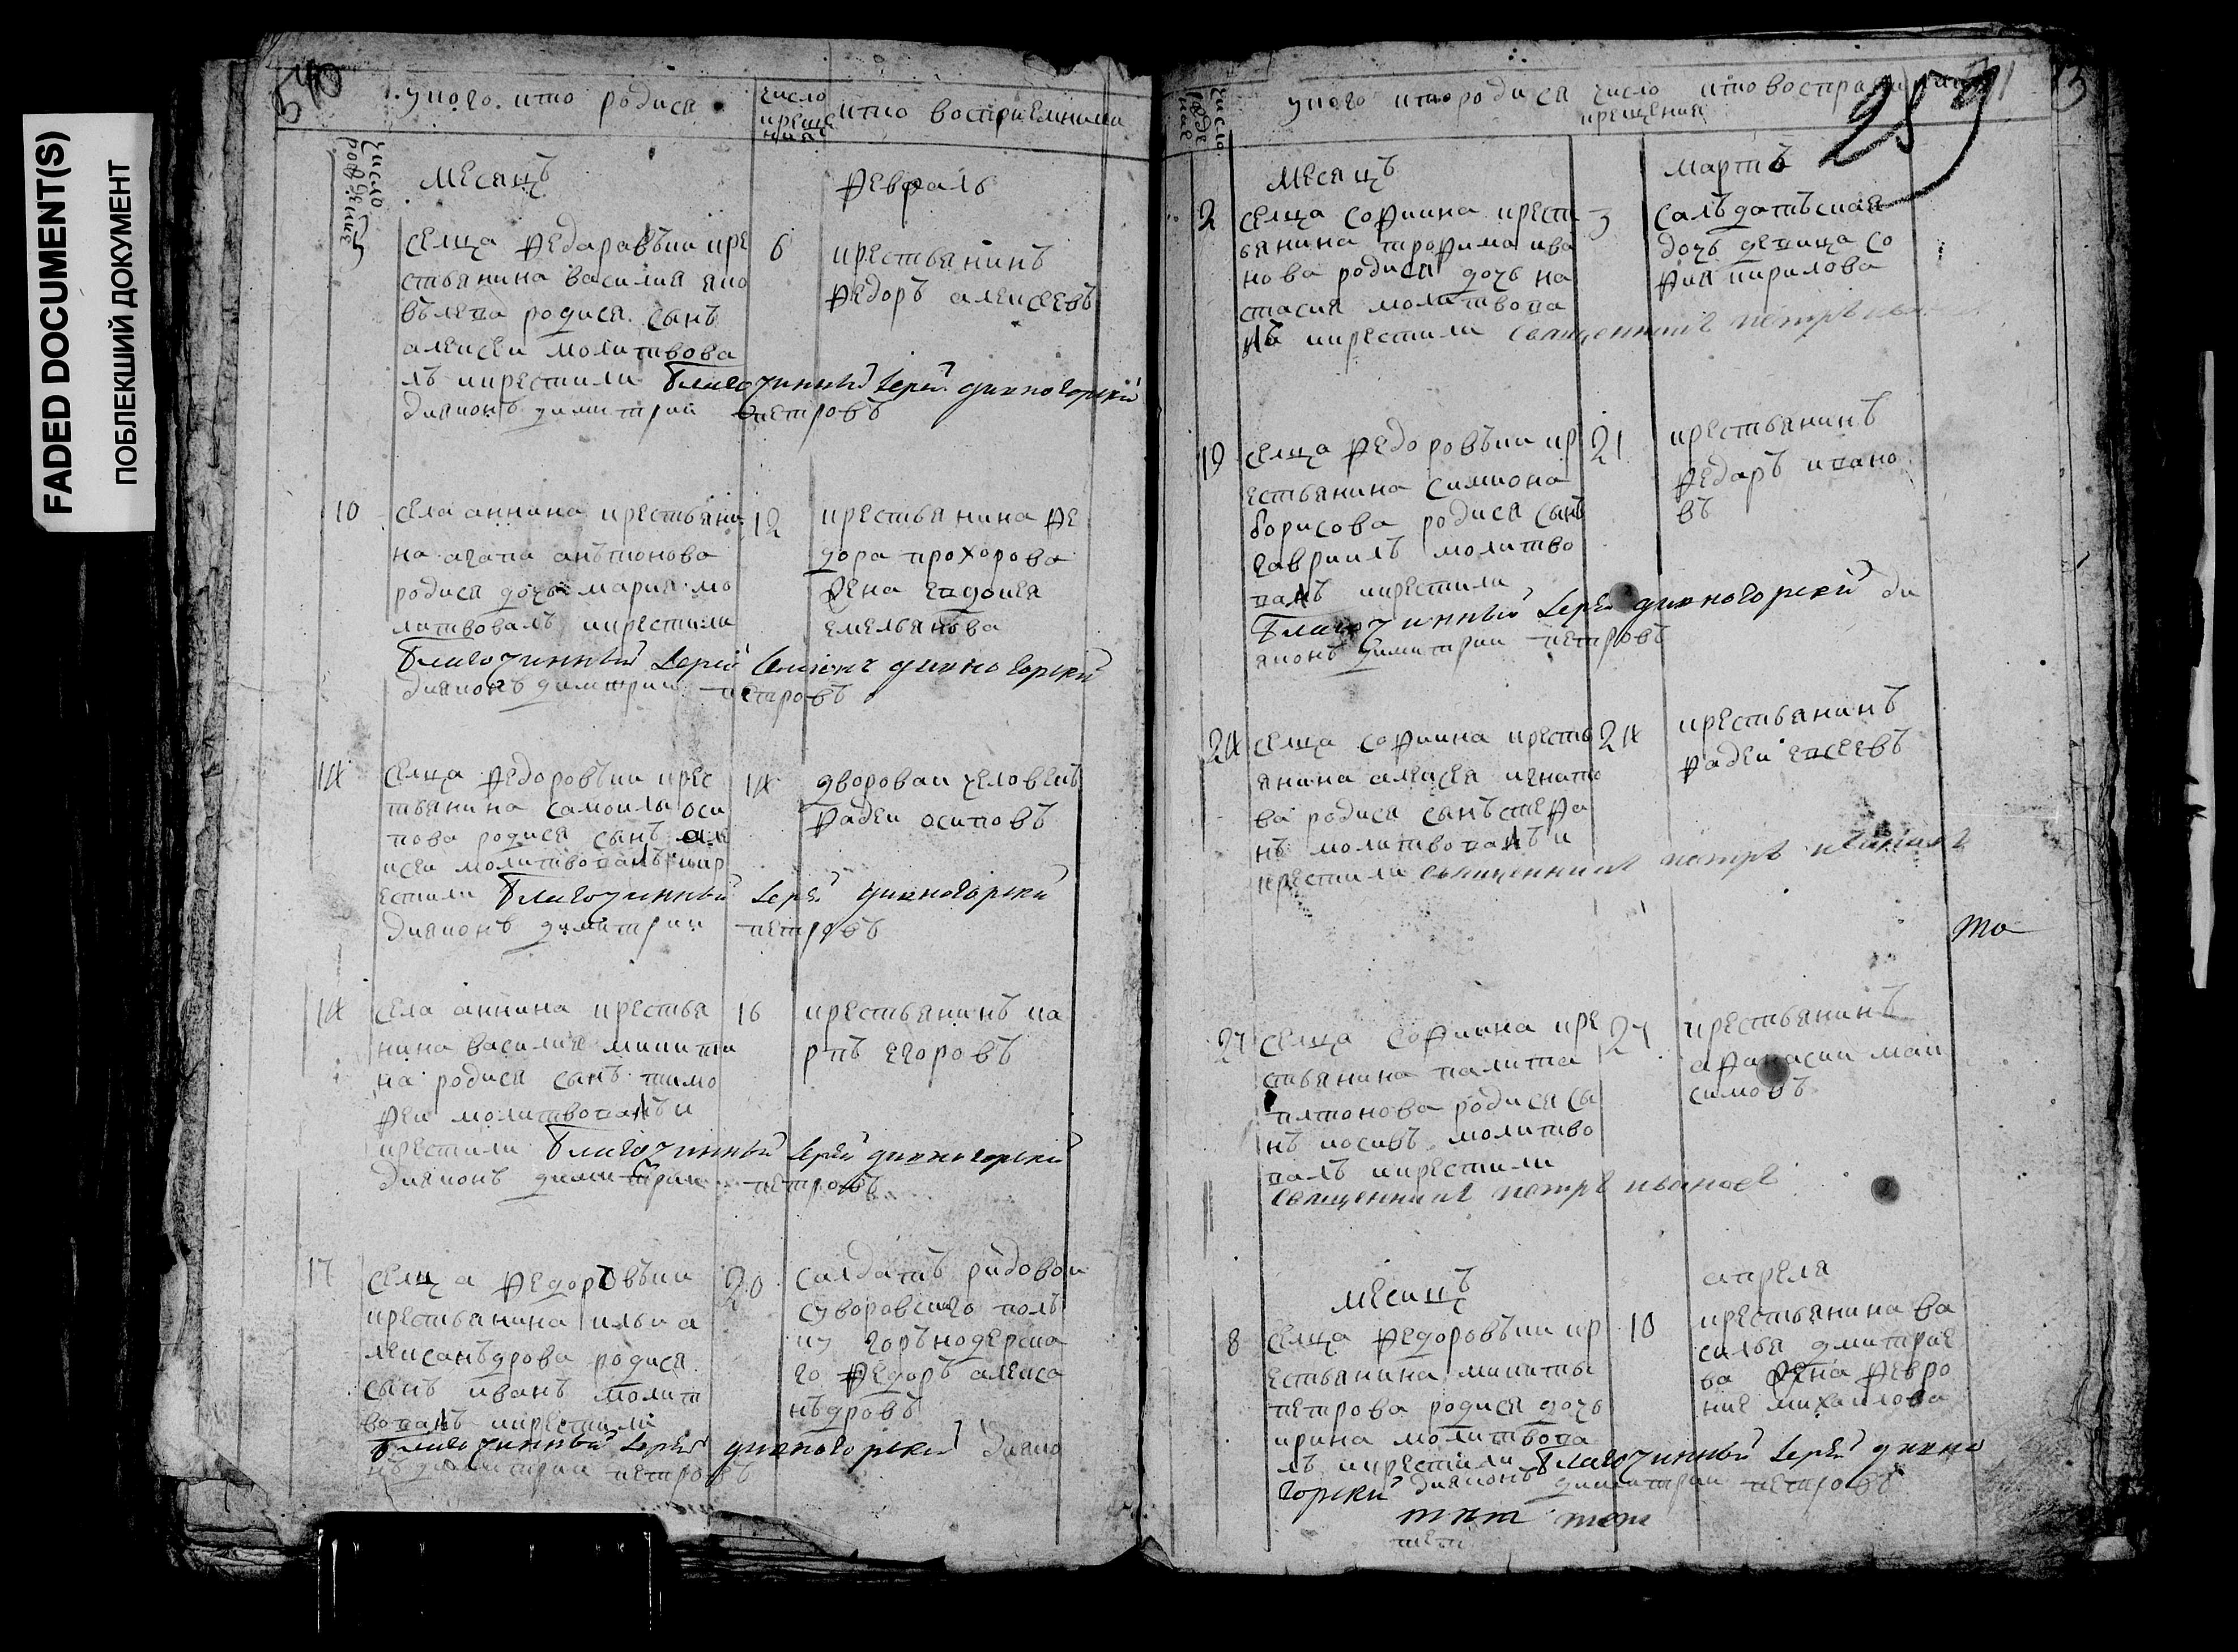 FADED DOCUMENT(S)
ПОБЛЕКШИЙ ДОКУМЕНТ
540
у кого кто родися
число крещения
кто восприемники
число рождения
месяцъ февраль
5
селца федаравъки кре
стьянина василия яко
вълева родися сынъ
алексеи молитвова
лъ икрестили Благочинный Iерей дивногорскiй
дияконъ димитрии петровъ
6
крестьянинъ
федоръ алексеевъ
10
села аннина крестьяни
на агапа анътонова
родися дочь мария мо
литвовалъ икрестили
Благочинный Iерей Симионъ дивногорскiй
дияконъ димитрии петровъ
12
крестьянина фе
дора прохорова
жена евдокея
емельянова
14
селца федоровъки крес
тьянина самоилы оси
пова родися сынъ але
ксеи молитвовалъ икр
естили Благочинный Iерей дивногорскiй
дияконъ димитрии петровъ
14
двороваи человекъ
фадеи осиповъ
14
села аннина крестья
нина василия микити
на родися сынъ тимо
феи молитвовалъ и
крестили Благочинный Iерей дивногорскiй
дияконъ димитрии петровъ
16
крестьянинъ ка
рпъ егоровъ
17
селца федоровъки
крестьянина илья а
лексанъдрова родися
сынъ иванъ молит
вовалъ икрестили
Благочинный Iерей дивногорскiй дияко
нъ димитрии петровъ
20
салдатъ рядовои
суворовскаго полъ
ку горънодерска
го федоръ алекса
нъдровъ
259
число рождения
у кого кто родися
число крещения
кто восприемники
месяцъ мартъ
2
селца софиина крест
ьянина трофима ива
нова родися дочь на
стасия молитвова
лъ икрестили священникъ петръ
3
салъдатъская
дочь девица со
фия кирилова
19
селца федоровъки кр
естьянина симиона
борисова родися сынъ
гавриилъ молитво
валъ икрестили
Благочинный Iерей дивногорскiй ди
яконъ димитрии петровъ
21
крестьянинъ
федаръ ивано
въ
24
селца софиина кресть
янина алексея игнато
ва родися сынъ стефа
нъ молитвовалъ и
крестили священникъ петръ ивановъ
24
крестьянинъ
фадеи евсеевъ
то
27
селца софиина кре
стьянина палита
платонова родися сы
нъ иосивъ молитво
валъ икрестили
священникъ петръ ивановъ
27
крестьянинъ
афанасии мак
симовъ
месяцъ апреля
8
селца федоровъки кр
естьянина микиты
петрова родися дочь
ирина молитвова
лъ икрестили Благочинный Iерей дивно
горскiй дияконъ димитрии петровъ
10
крестьянина ва
силья дмитрие
ва жена февро
ния михаилова